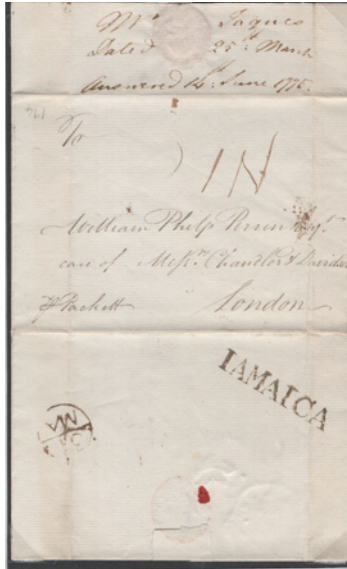 Mr Jaques
Dated 25th March
Answered 14th June 1775.
To
IN
William Philp Perrin Esqr
care of Messrs Chandler & Davidson
P Packett London
JAMAICA